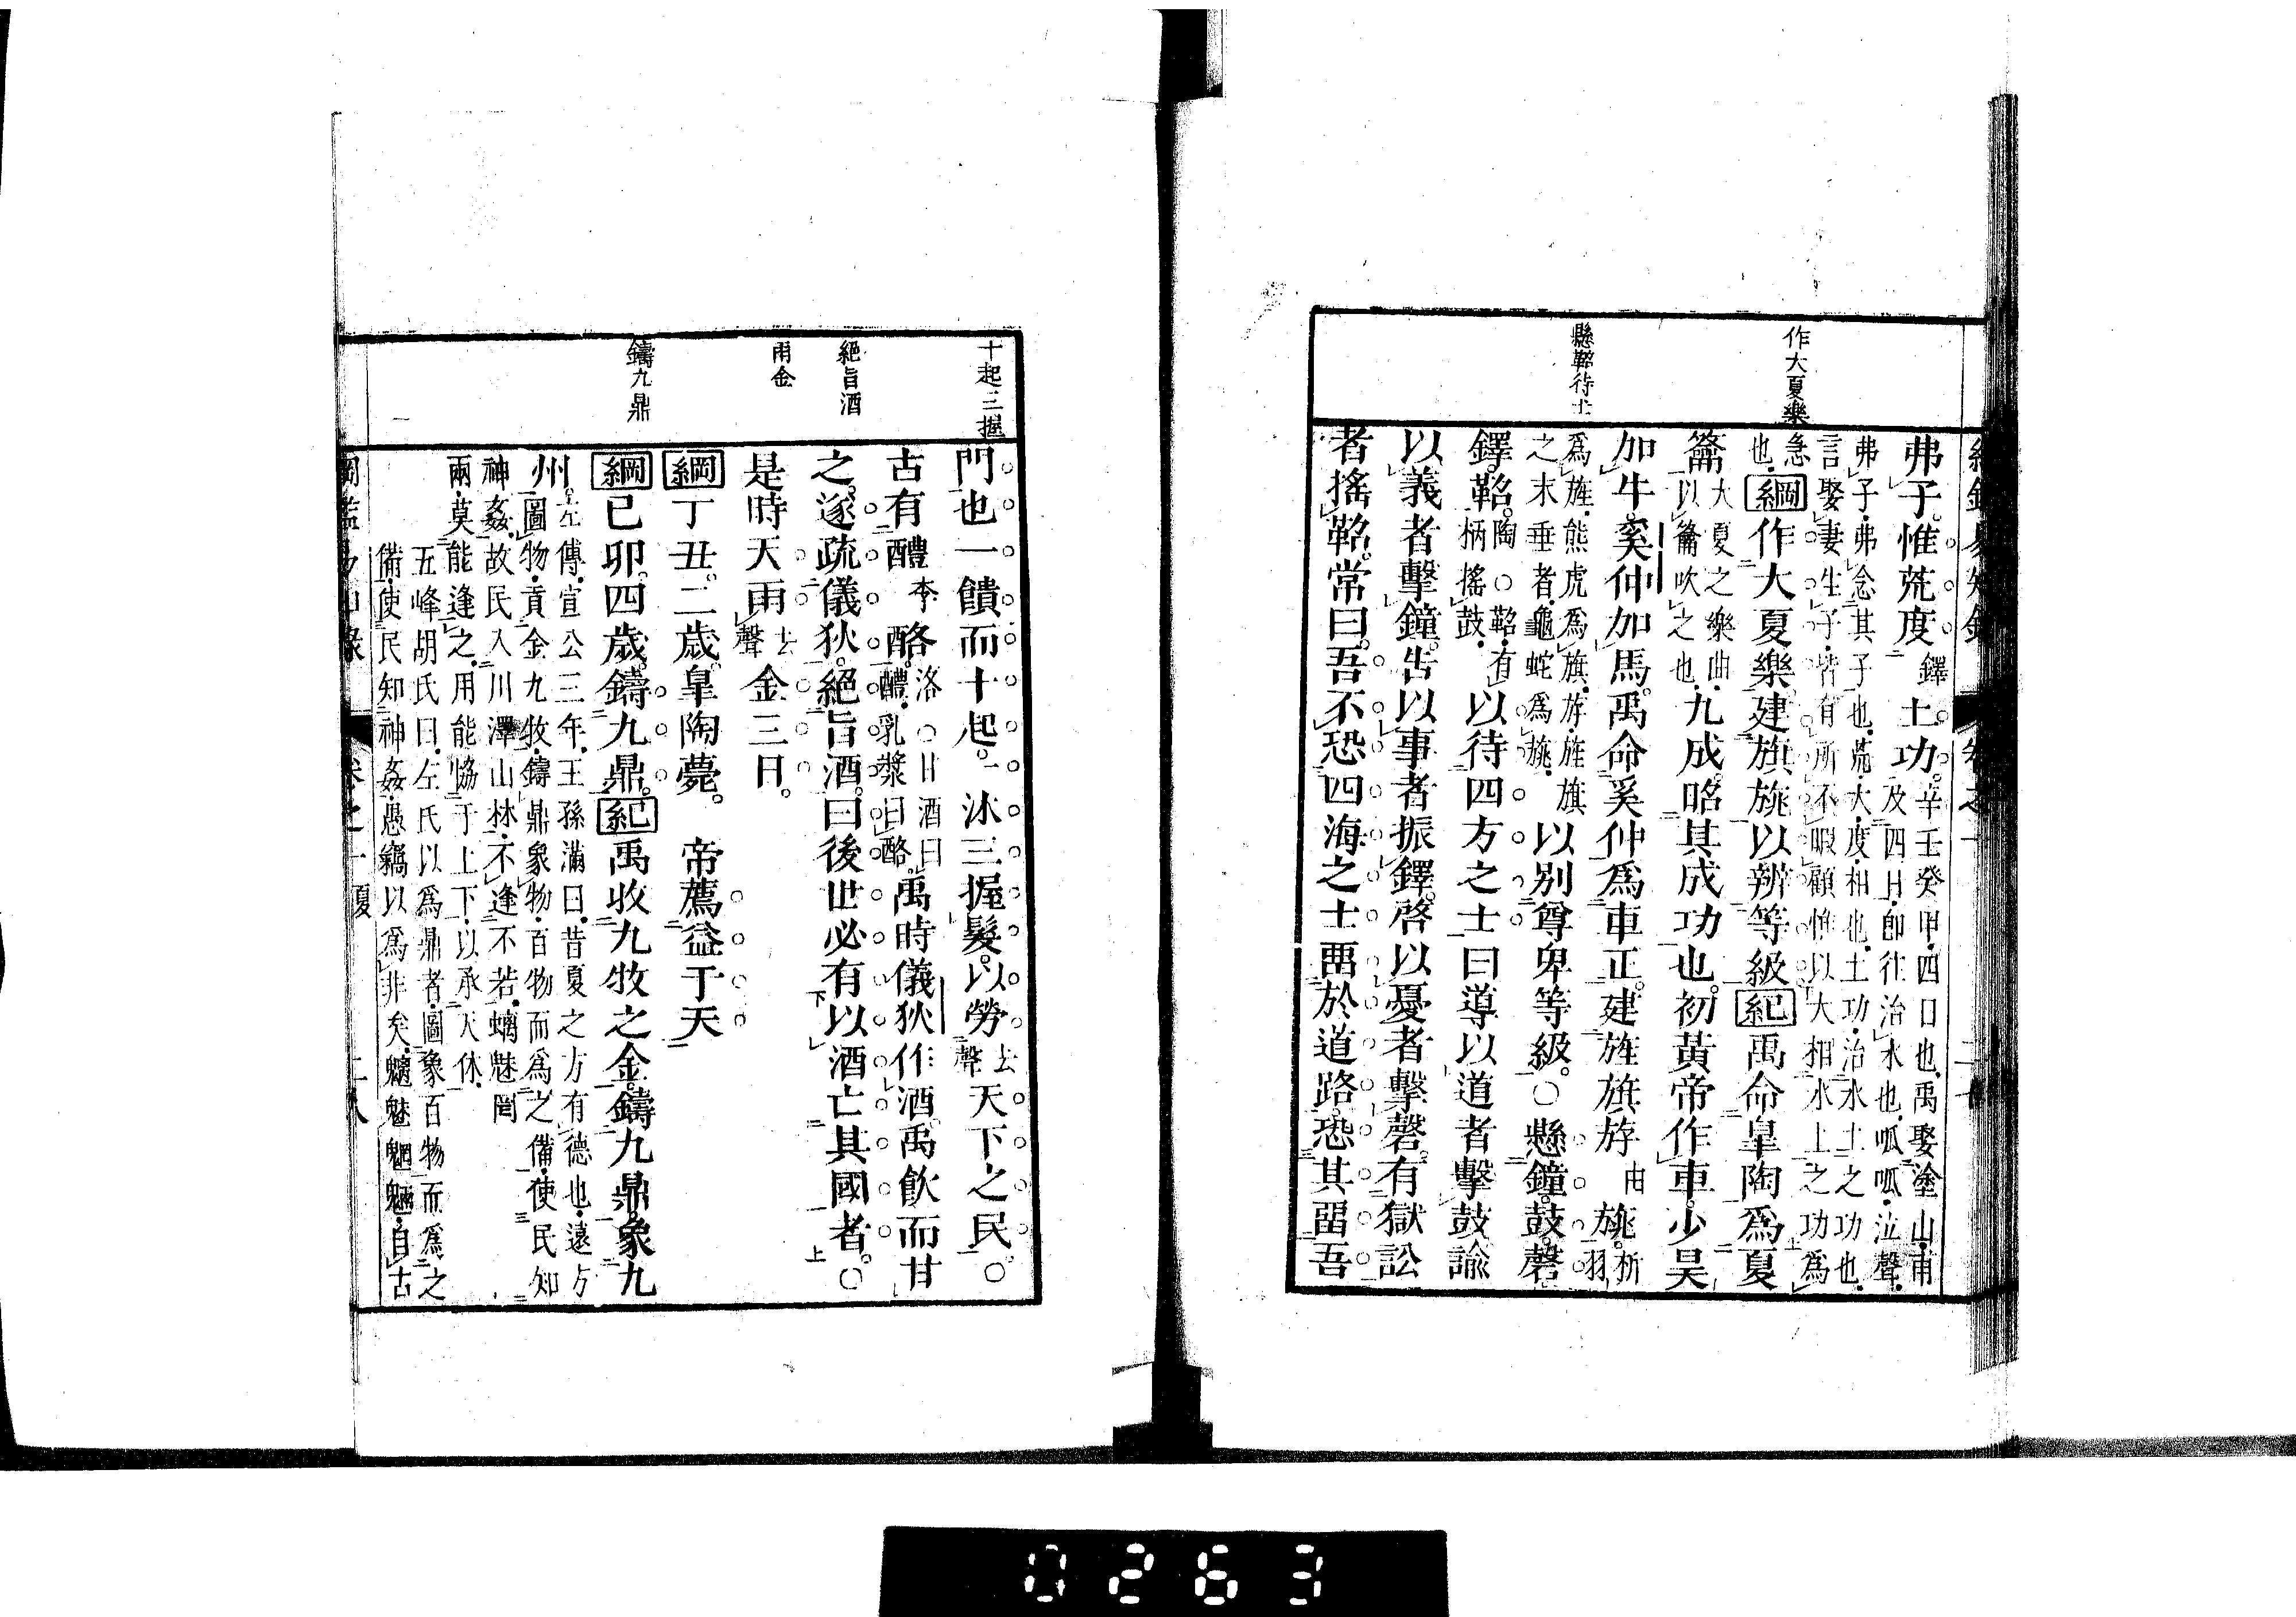 作大夏樂
懸鞀待士
弗子惟荒度鐸土功辛壬癸甲四日也禹娶塗山甫
及四日卽往治水也呱呱泣聲
弗子弗念其子也荒大度相也土功治水土之功也
言娶妻生子皆有所不暇顧惟以大相水土之功爲
急
也綱作大夏樂建旗旐以辨等級紀禹命皐陶爲夏
籥大夏之樂曲
以籥吹之也九成昭其成功也初黃帝作車少昊
加牛奚仲加馬禹命奚仲爲車正建旌旗斿由旐析
羽
爲旌熊虎爲旗斿旌旗
之末垂者龜蛇爲旐以別尊卑等級○懸鐘鼓磬
鐸鞀陶○鞀有
柄搖鼓以待四方之士曰導以道者擊鼓諭
以義者擊鐘告以事者振鐸啓以憂者擊磬有獄訟
者搖鞀常曰吾不恐四海之士畱於道路恐其畱吾
十起三握
絕旨酒
雨金
鑄九鼎
門也一饋而十起一沐三握髮以勞去聲天下之民○
古有醴李酪洛○甘酒曰
醴乳漿曰酪禹時儀狄作酒禹飮而甘
之遂疏儀狄絕旨酒曰後世必有以酒亡其國者○
是時天雨去聲金三日
綱丁丑二歲皐陶薨 帝薦益于天
綱己卯四歲鑄九鼎紀禹收九牧之金鑄九鼎象九
州左傳宣公三年王孫滿曰昔夏之方有德也遠方
圖物貢金九牧鑄鼎象物百物而爲之備使民知
神姦故民入川澤山林不逢不若螭魅罔
兩莫能逢之用能協于上下以承天休
五峰胡氏曰左氏以爲鼎者圖象百物而爲之
備使民知神姦愚竊以爲非矣魑魅魍魎自古
卷之一 夏
0263